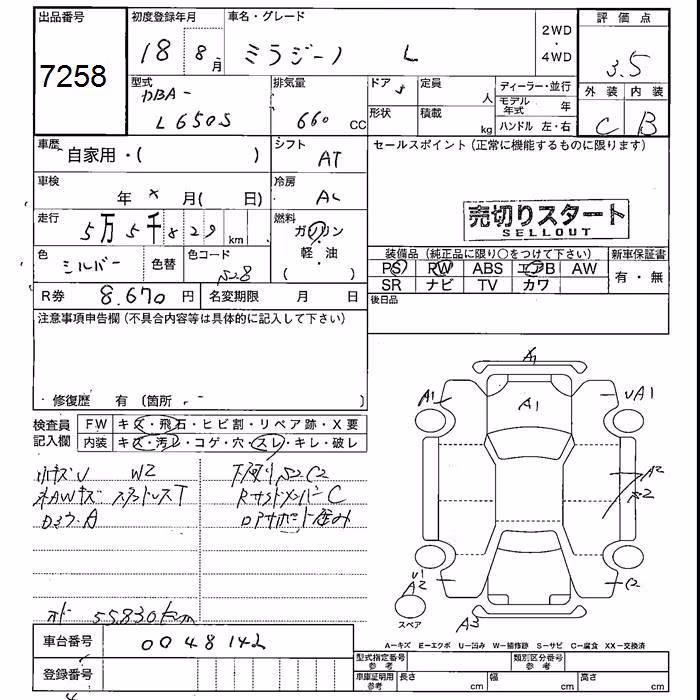 出品番号 初度登録年月 車名・グレード 2WD・4WD 評価点
7258 18 8月 ミラジーノ L 3.5
外装 内装
C B
型式 DBA- L650S 排気量 660 CC ドア 5 定員 人 ディーラー・並行
形状 積載 kg モデル年式 年
ハンドル 左・右
車歴 自家用・( ) シフト AT セールスポイント(正常に機能するものに限ります)
車検 年 × 月( 日) 冷房 AC
売切りスタート
SELLOUT
走行 5万5千829 km 燃料 ガソリン
軽・油
( )
色 シルバー 色替 色コード S28
装備品(純正品に限り○をつけて下さい) 新車保証書
PS RW ABS エアB AW 有・無
SR ナビ TV カワ
R券 8.670 円 名変期限 月 日 後日品
注意事項申告欄(不具合内容等は具体的に記入して下さい)
・修復歴 有(箇所 )
検査員記入欄 FW キズ・飛石・ヒビ割・リペア跡・X要
内装 キズ・汚レ・コゲ・穴・スレ・キレ・破レ
小キズU W2 下廻りS2C2
C
A
A1
A1
UA1
A1
A2
U1
A2
C2
A3
スペア
55830km
A=キズ E=エクボ U=凹み W=補修跡 S=サビ C=腐食 XX=交換済
車台番号 0048142
登録番号
型式指定番号 参考 類別区分番号 参考
車庫証明用 参考 長さ cm 幅 cm 高さ cm